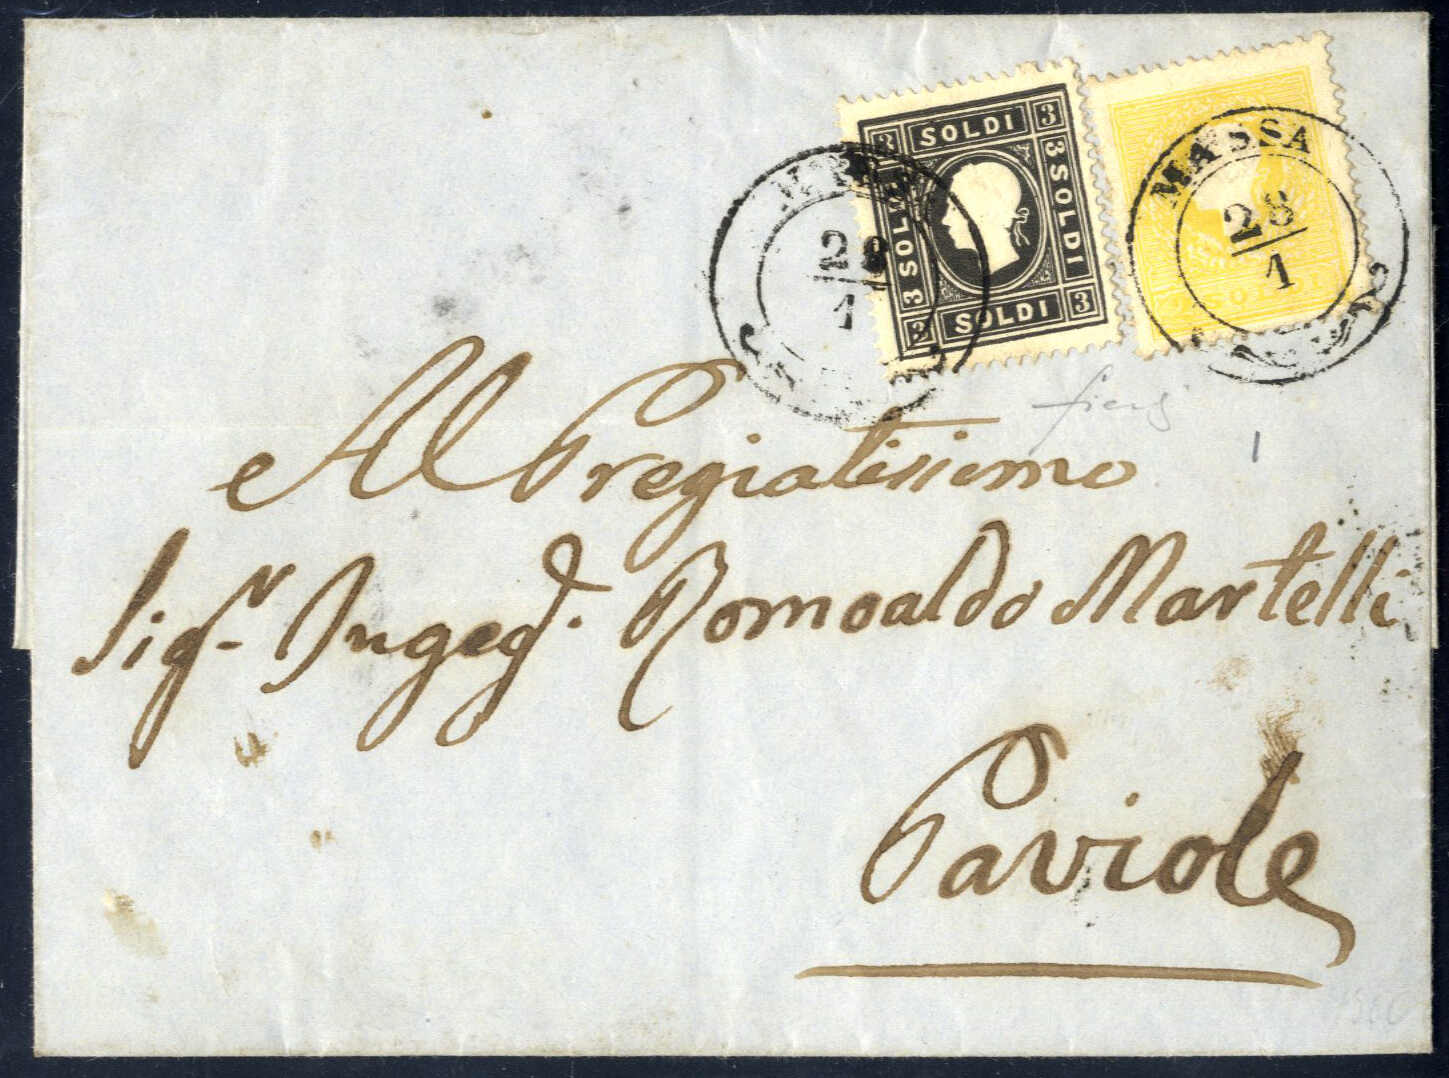 3 SOLDI 3
3 SOLDI
3 SOLDI
3 SOLDI 3
2 SOLDI
MASSA
28
1
28
1
Al Pregiatissimo
Sigr. Ingeg. Romoaldo Martelli
Paviole